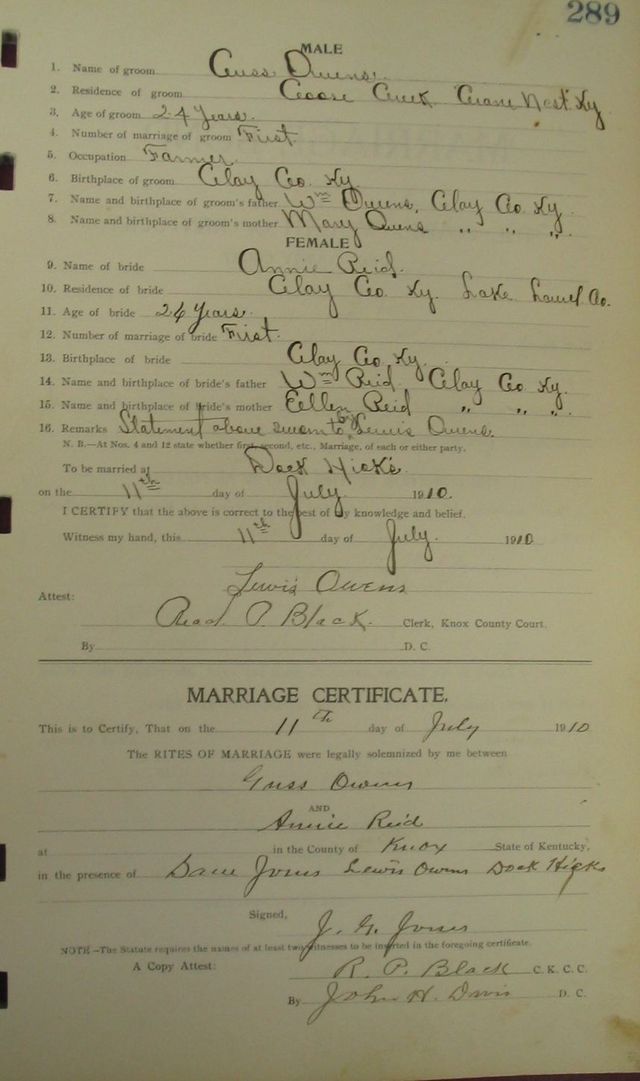 289
MALE
1. Name of groom Guss Owens.
2. Residence of groom Goose Creek Crane Nest Ky
3. Age of groom 24 Years.
4. Number of marriage of groom First.
5. Occupation Farmer.
6. Birthplace of groom Clay Co. Ky
7. Name and birthplace of groom's father Wm Owens, Clay Co. Ky.
8. Name and birthplace of groom's mother Mary Owens " " ".
FEMALE
9. Name of bride Annie Reid.
10. Residence of bride Clay Co. Ky. Lake Laurel Co.
11. Age of bride 24 Years.
12. Number of marriage of bride First.
13. Birthplace of bride Clay Co. Ky.
14. Name and birthplace of bride's father Wm Reid, Clay Co. Ky.
15. Name and birthplace of bride's mother Ellen Reid " " ".
16. Remarks Statement above sworn to by Lewis Owens.
N. B.—At Nos. 4 and 12 state whether first, second, etc., Marriage, of each or either party.
To be married at Dock Hicks
on the 11th day of July 1910.
I CERTIFY that the above is correct to the best of my knowledge and belief.
Witness my hand, this 11th day of July. 1910
Lewis Owens
Attest:
Read P. Black. Clerk, Knox County Court.
By D. C.
MARRIAGE CERTIFICATE.
This is to Certify, That on the 11th day of July 1910
The RITES OF MARRIAGE were legally solemnized by me between
Guss Owens
AND
Annie Reid
at in the County of Knox State of Kentucky,
in the presence of Dave Jones Lewis Owens Dock Hicks
Signed, J. G. Jones
NOTE—The Statute requires the names of at least two witnesses to be inserted in the foregoing certificate.
A Copy Attest: R. P. Black C. K. C. C.
By John H. Davis D. C.